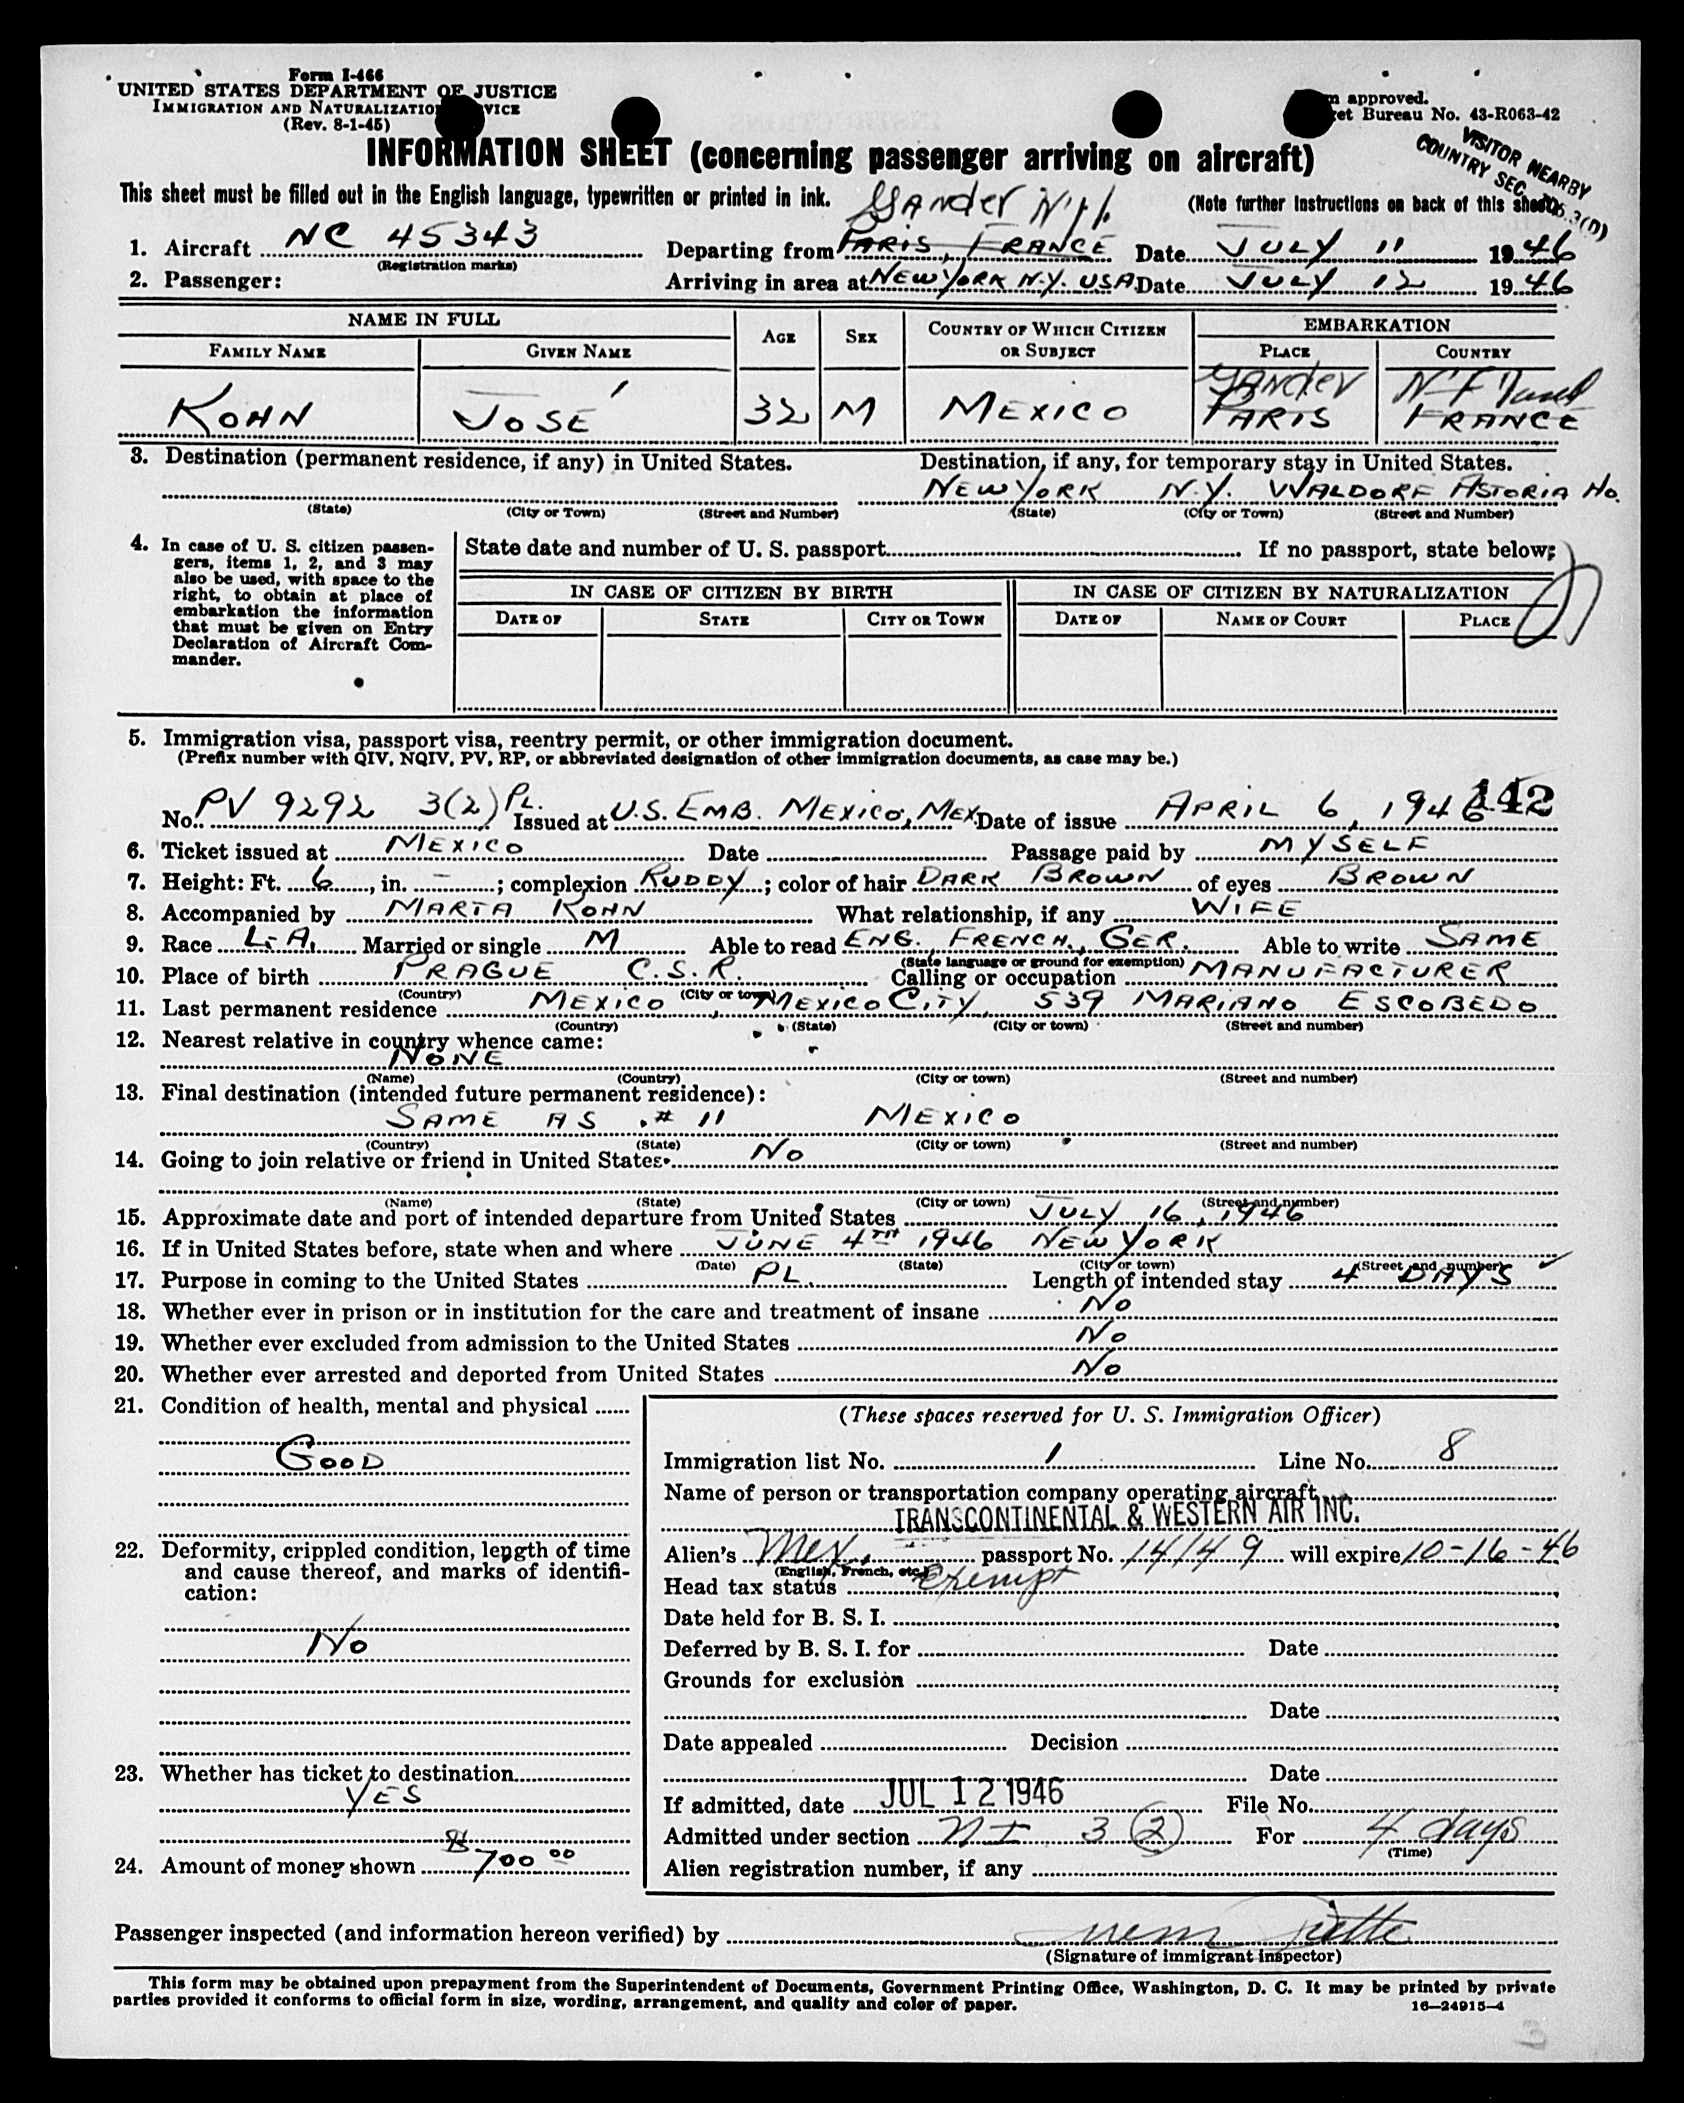 Form I-466
UNITED STATES DEPARTMENT OF JUSTICE
IMMIGRATION AND NATURALIZATION SERVICE
(Rev. 8-1-45)
approved.
Bureau No. 43-R063-42
VISITOR NEARBY
COUNTRY SEC. 3(D)
INFORMATION SHEET (concerning passenger arriving on aircraft)
This sheet must be filled out in the English language, typewritten or printed in ink.
(Note further instructions on back of this sheet)
Gander N'f'l.
1. Aircraft NC 45343 Departing from PARIS, FRANCE Date JULY 11 1946
(Registration marks)
2. Passenger: Arriving in area at NEW YORK N.Y. USA Date JULY 12 1946
NAME IN FULL AGE SEX COUNTRY OF WHICH CITIZEN OR SUBJECT EMBARKATION
FAMILY NAME GIVEN NAME PLACE COUNTRY
Gander
KOHN JOSÉ 32 M MEXICO PARIS FRANCE
3. Destination (permanent residence, if any) in United States. Destination, if any, for temporary stay in United States.
NEW YORK N.Y. WALDORF ASTORIA HO.
(State) (City or Town) (Street and Number) (State) (City or Town) (Street and Number)
4. In case of U. S. citizen passengers, items 1, 2, and 3 may also be used, with space to the right, to obtain at place of embarkation the information that must be given on Entry Declaration of Aircraft Commander.
State date and number of U. S. passport If no passport, state below:
IN CASE OF CITIZEN BY BIRTH IN CASE OF CITIZEN BY NATURALIZATION
DATE OF STATE CITY OR TOWN DATE OF NAME OF COURT PLACE
5. Immigration visa, passport visa, reentry permit, or other immigration document.
(Prefix number with QIV, NQIV, PV, RP, or abbreviated designation of other immigration documents, as case may be.)
142
No. PV 9292 3(2) PL. Issued at U.S. EMB. MEXICO, MEX. Date of issue APRIL 6, 1946
6. Ticket issued at MEXICO Date Passage paid by MYSELF
7. Height: Ft. 6, in. –; complexion RUDDY; color of hair DARK BROWN of eyes BROWN
8. Accompanied by MARTA KOHN What relationship, if any WIFE
9. Race L.A. Married or single M Able to read ENG., FRENCH, GER. Able to write SAME
(State language or ground for exemption)
10. Place of birth PRAGUE C.S.R. Calling or occupation MANUFACTURER
(Country) (City or town)
11. Last permanent residence MEXICO, MEXICO CITY, 539 MARIANO ESCOBEDO
(Country) (State) (City or town) (Street and number)
12. Nearest relative in country whence came:
NONE
(Name) (Country) (City or town) (Street and number)
13. Final destination (intended future permanent residence):
SAME AS # 11 MEXICO
(Country) (State) (City or town) (Street and number)
14. Going to join relative or friend in United States NO
(Name) (State) (City or town) (Street and number)
15. Approximate date and port of intended departure from United States JULY 16, 1946
16. If in United States before, state when and where JUNE 4TH 1946 NEW YORK
(Date) (State) (City or town) (Street and number)
17. Purpose in coming to the United States PL. Length of intended stay 4 DAYS
18. Whether ever in prison or in institution for the care and treatment of insane NO
19. Whether ever excluded from admission to the United States NO
20. Whether ever arrested and deported from United States NO
21. Condition of health, mental and physical
GOOD
22. Deformity, crippled condition, length of time and cause thereof, and marks of identification:
NO
23. Whether has ticket to destination
YES
24. Amount of money shown $ 700 00
(These spaces reserved for U. S. Immigration Officer)
Immigration list No. 1 Line No. 8
Name of person or transportation company operating aircraft
TRANSCONTINENTAL & WESTERN AIR INC.
Alien's Mex. passport No. 14149 will expire 10-16-46
(English, French, etc.)
Head tax status Exempt
Date held for B. S. I.
Deferred by B. S. I. for Date
Grounds for exclusion
Date
Date appealed Decision
Date
If admitted, date JUL 12 1946 File No.
Admitted under section NI 3 (2) For 4 days
(Time)
Alien registration number, if any
Passenger inspected (and information hereon verified) by
(Signature of immigrant inspector)
This form may be obtained upon prepayment from the Superintendent of Documents, Government Printing Office, Washington, D. C. It may be printed by private
parties provided it conforms to official form in size, wording, arrangement, and quality and color of paper.
16—24915-4